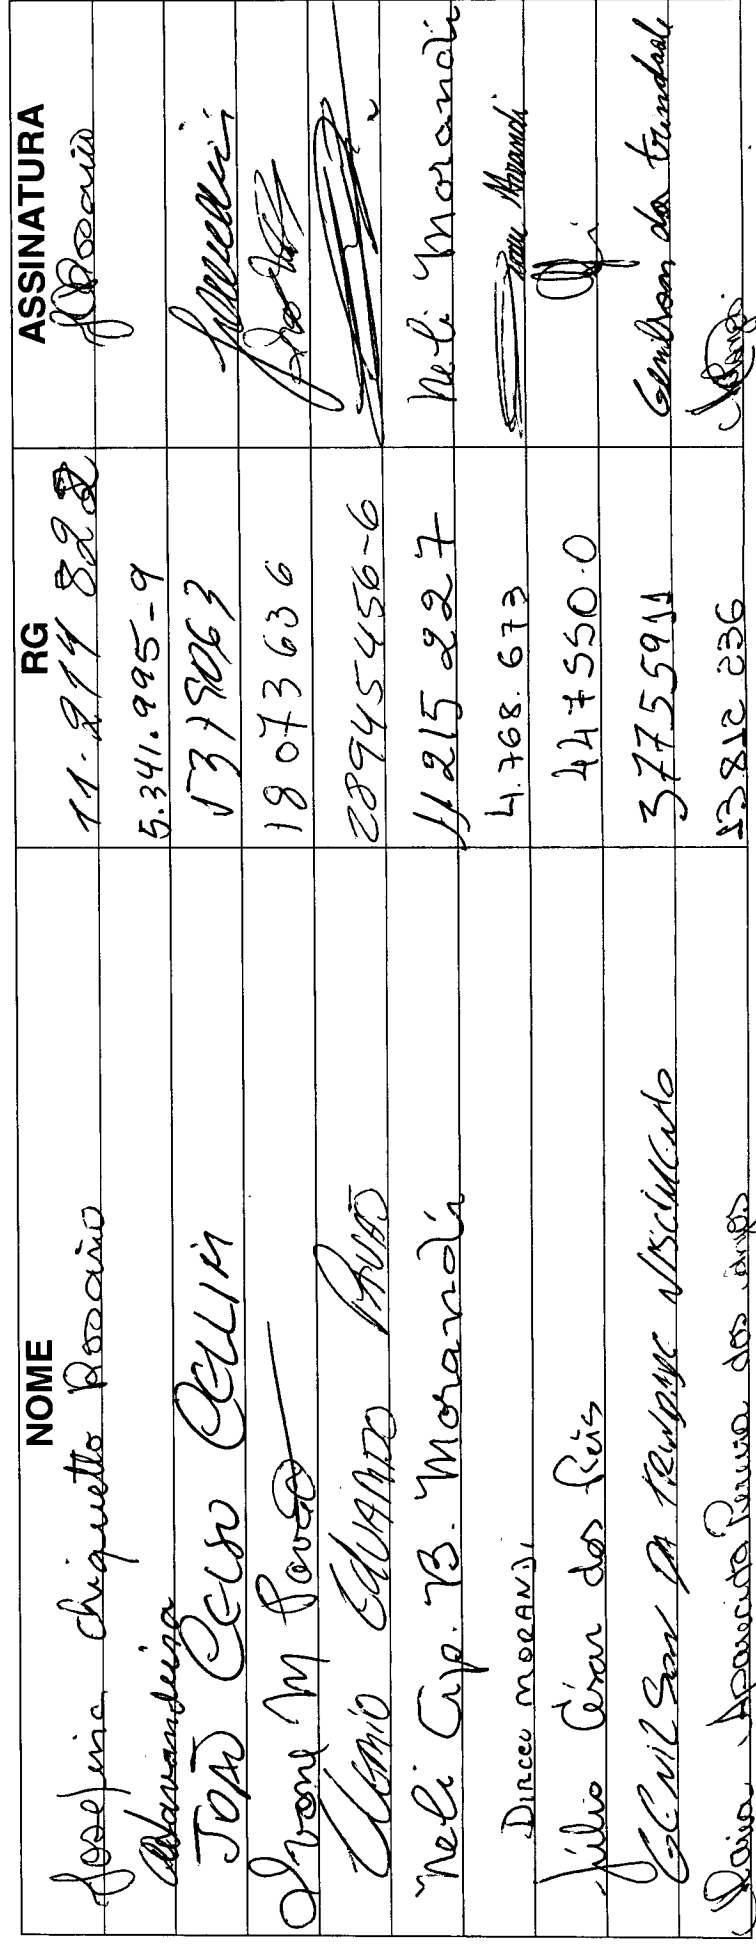 NOME RG ASSINATURA
Josefina Chiquetto Rosario 11.214 822 JRosario
5.341.995-9
JOÃO CELSO CELLIM 5379063
Ivone M Pavão 18073636
EDUARDO PAVÃO 28945456-6
Neli Ap. B. Morandi 11215227 Neli Morandi
DIRCEU MORANDI 4.768.673 Dirceu Morandi
Júlio César dos Reis 447550.0
GENILSON DA TRINDADE NASCIMENTO 37755911 Genilson da trindade
Maria Aparecida Pereira dos Anjos 13812 236